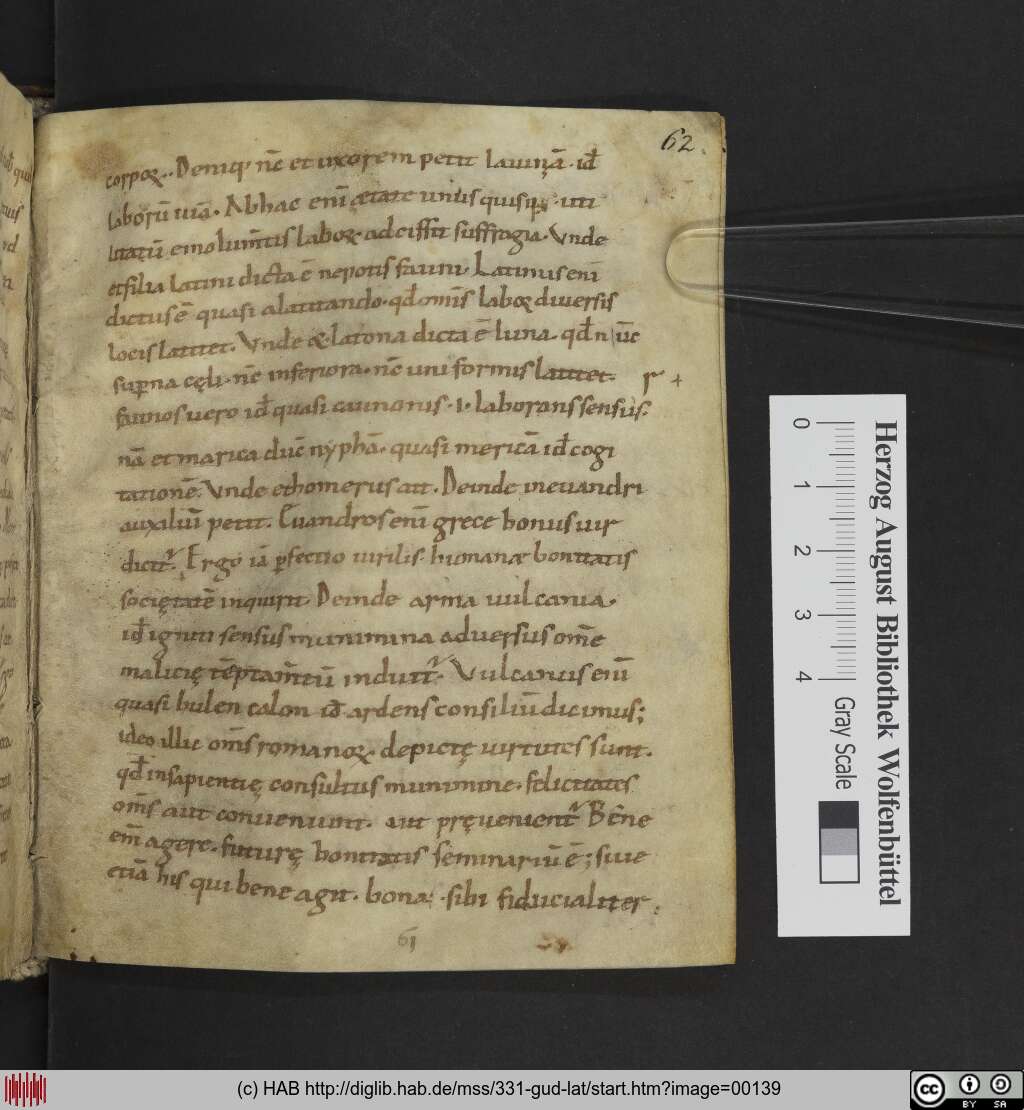 62.
corpoꝝ. Deniq; nc̄ et uxorem petit lauinā. id̄
laborū uiā. Ab hac eni᷄ ætate unus quisq; uti
litatū emolum̄tis laboꝝ adsciscit suffragia. Vnde
et filia latini dicta ē nepotis fauni. Latinus eni᷄
dictus ē quasi a latitando. qd̄ omīs laboꝝ diuersis
locis latitet. Vnde & latona dicta ē luna. qd̄ n̄
sup̄na cęli. nc̄ inferiora. nc̄ uniformis latitet.
faunos uero id̄ quasi .i. laborans sensus.
nā et marica ducit̄ nyphā. quasi mericā id̄ cogi
tationē. Vnde et homerus ait. Deinde in euandri
auxiliū petit. Euandros eni᷄ grece bonus uir
dicit̄. Ergo iā ꝑfectio uirilis humanæ bonitatis
sociętatē inquirit. Deinde arma uulcania.
id̄ igniti sensus munimina aduersus om̄e
malicię tēptam̄tū indutt̄. Vulcanus eni᷄
quasi bulen calon id̄ ardens consiliū dicimus;
ideo illic om̄s romanoꝝ depictę uirtutes sunt.
qd̄ in sapientię consultus munimine. felicitates
om̄s aut conueniunt. aut pręuenient̄ Bene
eni᷄ agere. futurę bonitatis seminariū ē; siue
etiā his qui bene agit. bona sibi fiducialiter
61
Herzog August Bibliothek Wolfenbüttel
0 1 2 3 4
Gray Scale
(c) HAB http://diglib.hab.de/mss/331-gud-lat/start.htm?image=00139
cc BY SA